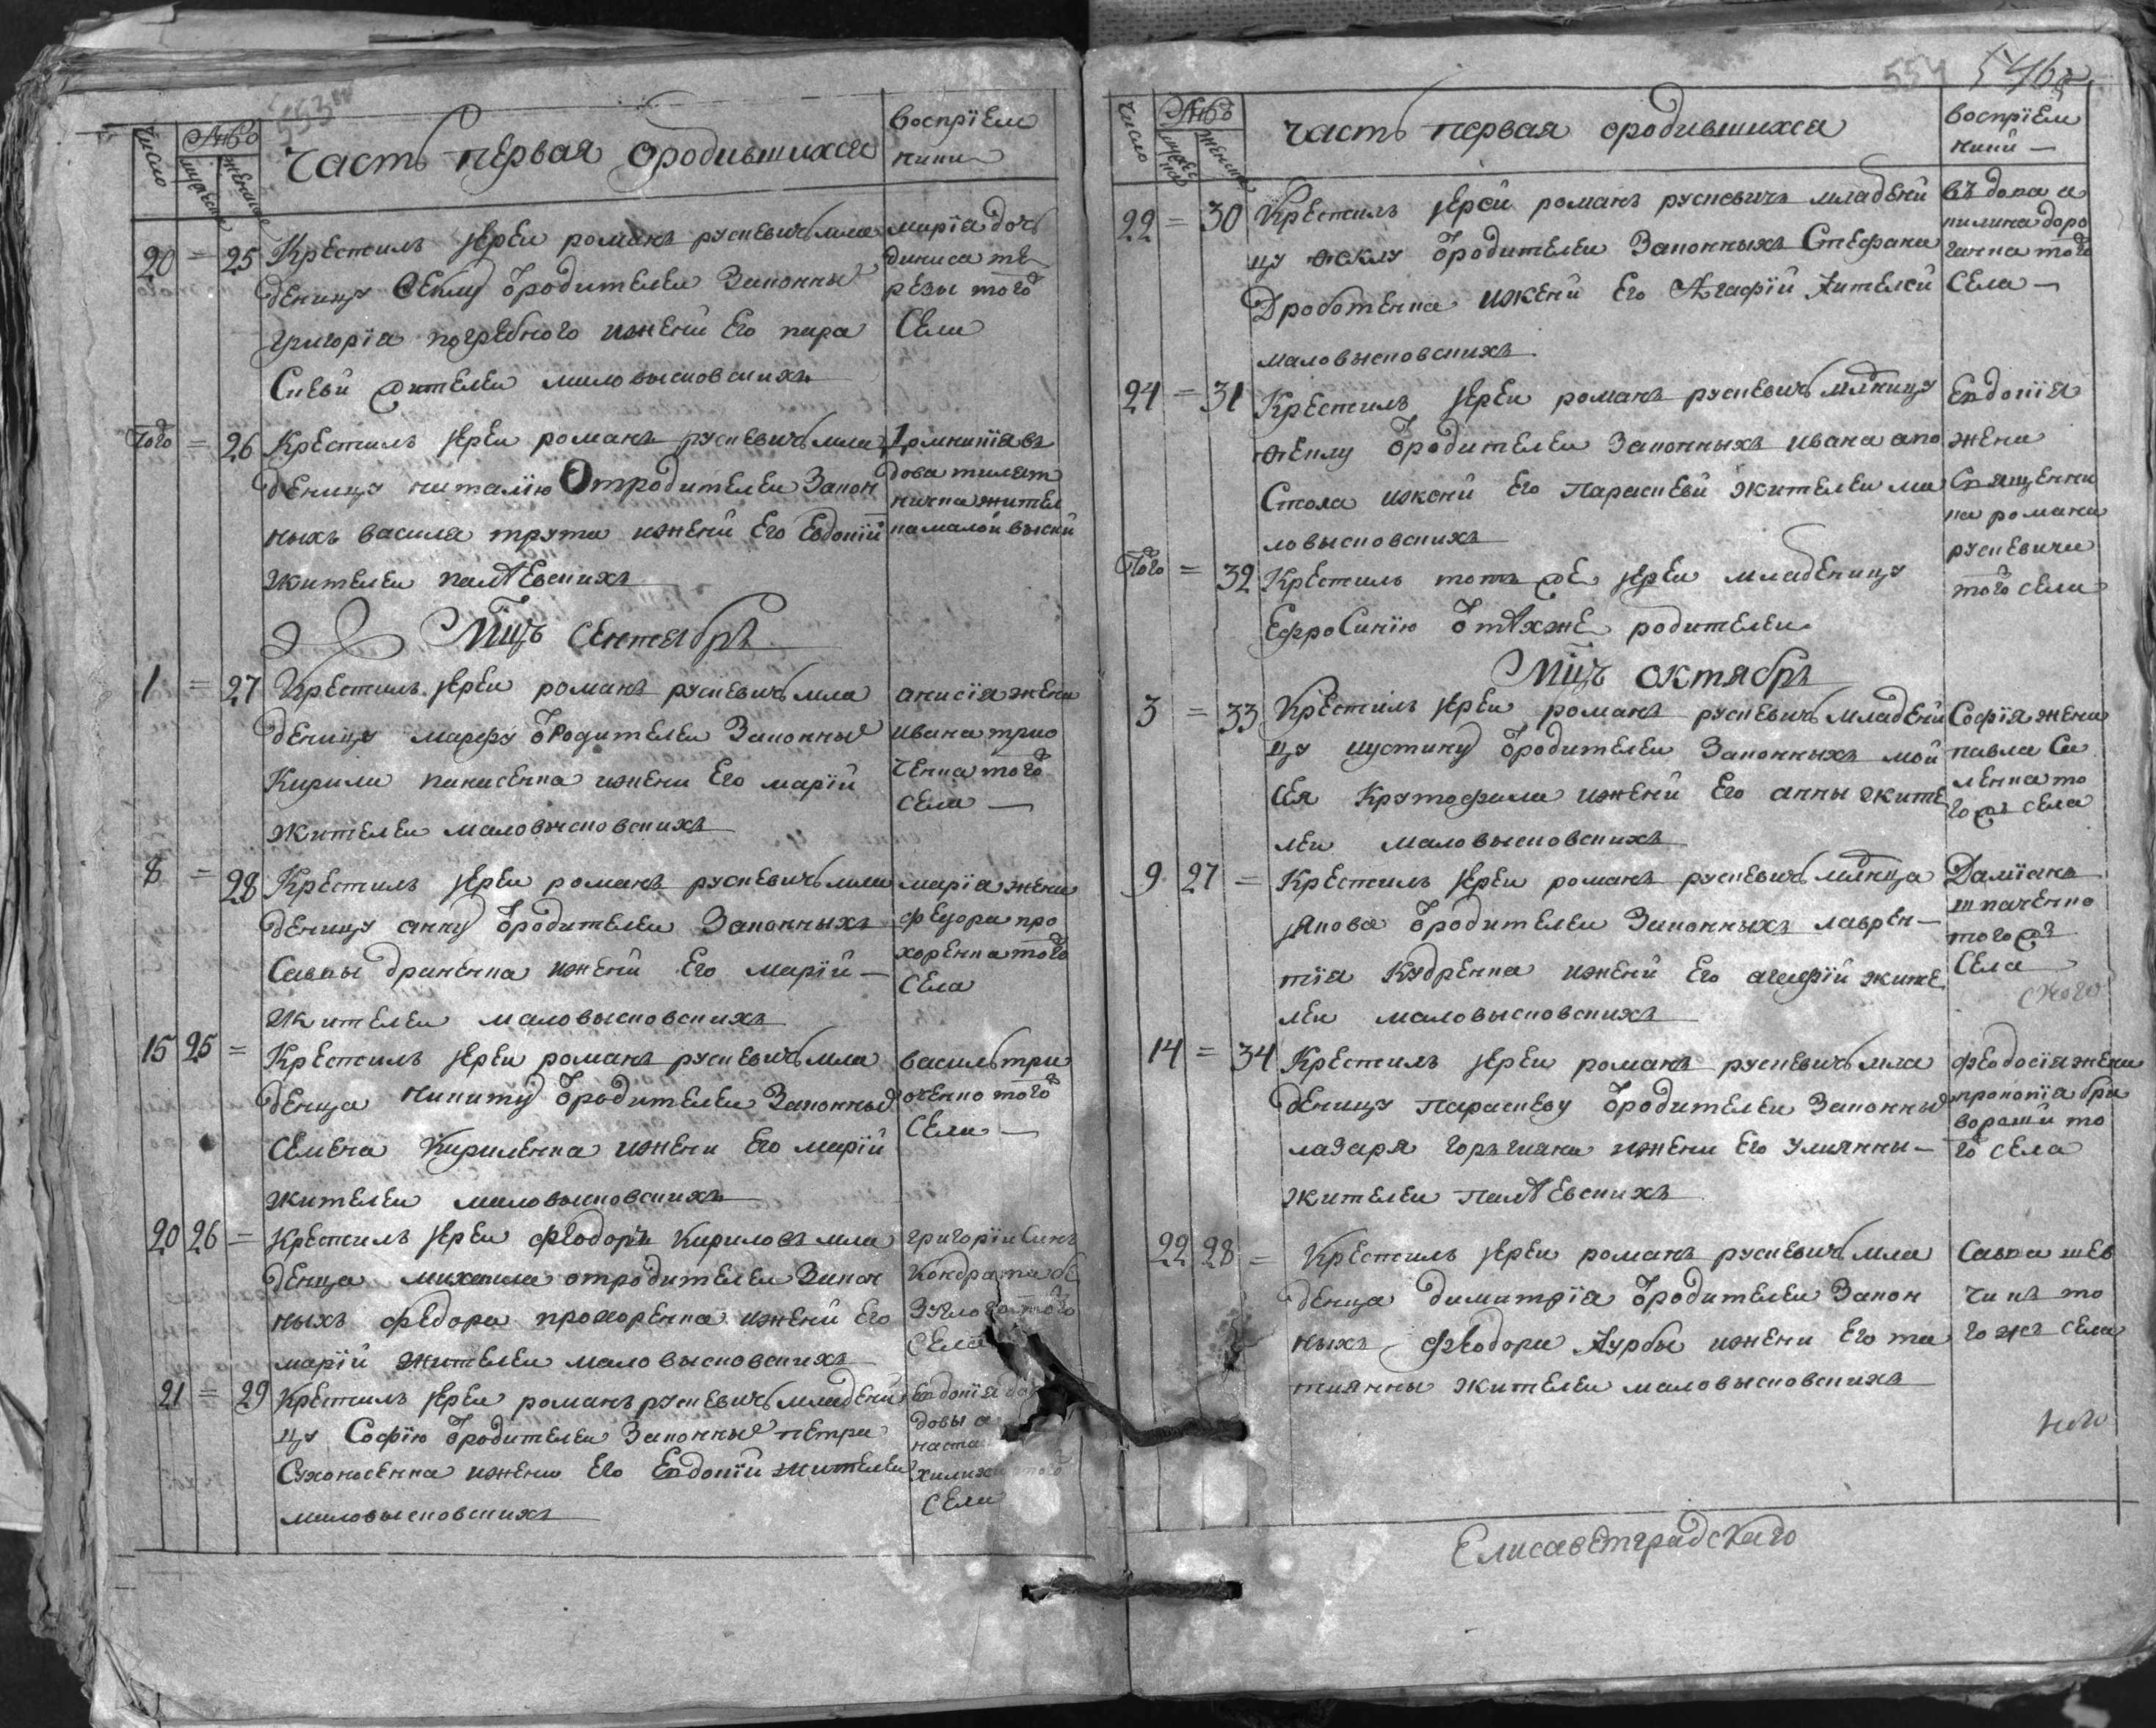 553
число
мужеска
женска
часть первая ородившихся
воспрїем
ники
20 = 25 Крестилъ Іереи романъ русневичъ мла
деницу Ѳеклу ѿродителеи Законны
григорїа погребного ижени Его пара
Сневіи жителеи маловысковскихъ
марїа дочь
дениса те
резы того
Села
Того = 26 Крестилъ Іереи романъ русневичъ мла
деницу наталїю Отродителеи Закон
ныхъ василя трута ижени Его Евдокїи
жителеи
домникїа в
дова
жител
ка малой выски
Мцъ Сентябръ
1 = 27 Крестилъ Іереи романъ русневичъ мла
деницу марфу ѿродителеи Законны
Кирила никисенка ижени Его марїи
жителеи маловысковскихъ
анисїя жена
ивана трио
ченка того
села
8 = 28 Крестилъ Іереи романъ русневичъ мла
деницу анну ѿродителеи Законныхъ
Савы драненка ижени Его марїи
жителеи маловысковскихъ
марїа жена
феодора про
хоренка того
Села
15 25 = Крестилъ Іереи романъ русневичъ мла
денца никиту ѿродителеи Законны
Семена Кириленка ижени Его марїи
жителеи маловысковскихъ
василь три
оченко того
Села
20 26 = Крестилъ Іереи феодоръ кириловъ мла
денца михаила отродителеи Закон
ныхъ федора прохоренка ижени Его
марїи жителеи маловысковскихъ
григорїи Синъ
Кондрата
того
Села
21 = 29 Крестилъ Іереи романъ русневичъ младени
цу Софїю ѿродителеи Законны петра
Сухоносенка ижени Его Евдокїи жителеи
маловысковскихъ
Евдокїя
довы а
наста
того
Села
554 546
число
мужеска
женска
часть первая ородившихся
воспрїем
ники
22 = 30 Крестилъ Іереи романъ русневичъ младени
цу Ѳеклу ѿродителеи Законныхъ Стефана
Дроботенка ижени Его Агафїи жителеи
маловысковскихъ
въдова а
килина доро
того
Села
24 = 31 Крестилъ Іереи романъ русневичъ младницу
Ѳеклу ѿродителеи Законныхъ ивана апо
Стола ижени Его Параскевіи жителеи ма
ловысковскихъ
Евдокїя
жена
Священни
ка романа
русневича
того села
Того = 32 Крестилъ тотъ же Іереи младеницу
Ефросинїю ѿ тѣхже родителеи
Мцъ октябръ
3 = 33 Крестилъ Іереи романъ русневичъ младени
цу иустину ѿродителеи Законныхъ мои
сея Крутофала ижени Его анны жите
леи маловысковскихъ
Софїя жена
павла Са
ленка то
гожъ села
9 27 = Крестилъ Іереи романъ русневичъ младнца
Іякова ѿродителеи Законныхъ лаврен
тїа Кудренка ижени Его агафїи жите
леи маловысковскихъ
Дамїанъ
ткаченко
того жъ
Села
14 = 34 Крестилъ Іереи романъ русневичъ мла
деницу параскеву ѿродителеи Законны
лазаря ижени Его улиянны
жителеи
феодосїя жена
прокопїа
то
го села
22 28 = Крестилъ Іереи романъ русневичъ мла
денца димитрїа ѿродителеи Закон
ныхъ феодора журбы ижени Его та
тиянны жителеи маловысковскихъ
Савка шев
чикъ то
го жъ села
Елисаветградскаго